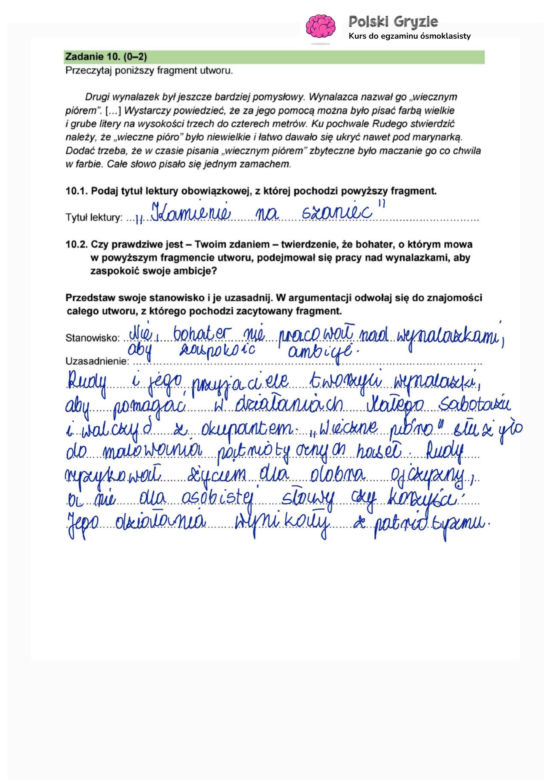 Polski Gryzie
Kurs do egzaminu ósmoklasisty
Zadanie 10. (0–2)
Przeczytaj poniższy fragment utworu.
Drugi wynalazek był jeszcze bardziej pomysłowy. Wynalazca nazwał go „wiecznym
piórem”. […] Wystarczy powiedzieć, że za jego pomocą można było pisać farbą wielkie
i grube litery na wysokości trzech do czterech metrów. Ku pochwale Rudego stwierdzić
należy, że „wieczne pióro” było niewielkie i łatwo dawało się ukryć nawet pod marynarką.
Dodać trzeba, że w czasie pisania „wiecznym piórem” zbyteczne było maczanie go co chwila
w farbie. Całe słowo pisało się jednym zamachem.
10.1. Podaj tytuł lektury obowiązkowej, z której pochodzi powyższy fragment.
Tytuł lektury: „Kamienie na szaniec”
10.2. Czy prawdziwe jest – Twoim zdaniem – twierdzenie, że bohater, o którym mowa
w powyższym fragmencie utworu, podejmował się pracy nad wynalazkami, aby
zaspokoić swoje ambicje?
Przedstaw swoje stanowisko i je uzasadnij. W argumentacji odwołaj się do znajomości
całego utworu, z którego pochodzi zacytowany fragment.
Stanowisko: Nie, bohater nie pracował nad wynalazkami,
aby zaspokoić ambicje.
Uzasadnienie:
Rudy i jego przyjaciele tworzyli wynalazki,
aby pomagać w działaniach Małego Sabotażu
i walczyć z okupantem. „Wieczne pióro” służyło
do malowania patriotycznych haseł. Rudy
ryzykował życiem dla dobra ojczyzny,
a nie dla osobistej sławy czy korzyści.
Jego działania wynikały z patriotyzmu.